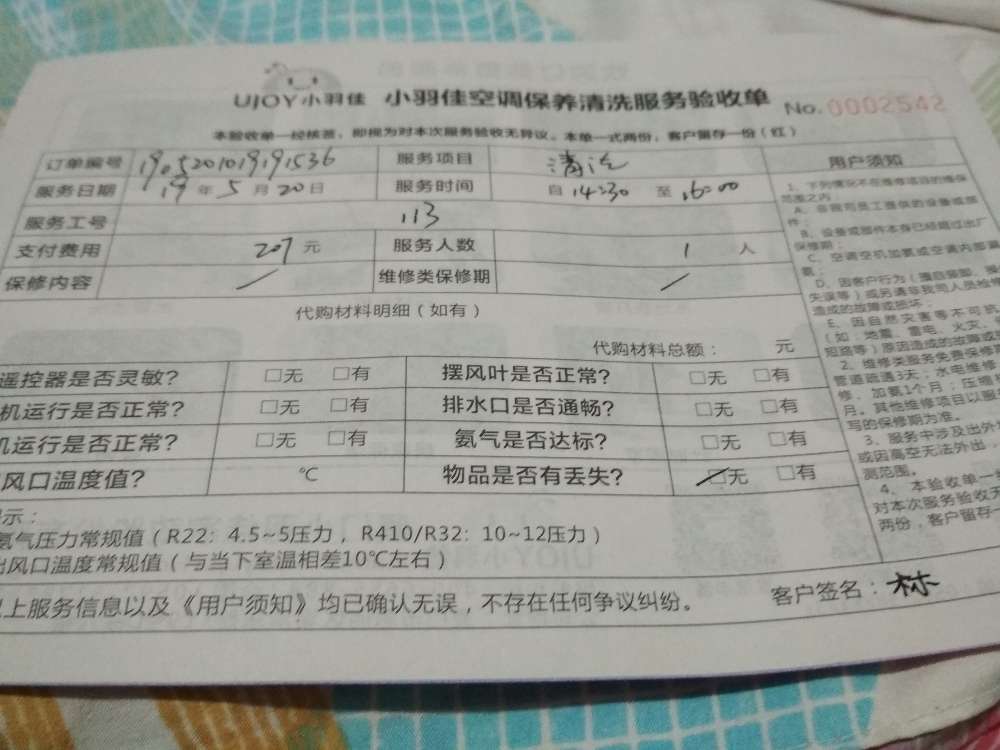 UJOY小羽佳 小羽佳空调保养清洗服务验收单 No. 0002542
本验收单一经核签，即视为对本次服务验收无异议。本单一式两份，客户留存一份（红）
订单编号 1905201019191536 服务项目 清洗
服务日期 19 年 5 月 20 日 服务时间 自 14:30 至 16:00
服务工号 113
支付费用 207 元 服务人数 1 人
保修内容 / 维修类保修期 /
代购材料明细（如有）
代购材料总额： 元
遥控器是否灵敏? □无 □有 摆风叶是否正常? □无 □有
机运行是否正常? □无 □有 排水口是否通畅? □无 □有
机运行是否正常? □无 □有 氨气是否达标? □无 □有
风口温度值? ℃ 物品是否有丢失? □无 □有
示：
氨气压力常规值（R22：4.5~5压力，R410/R32：10~12压力）
出风口温度常规值（与当下室温相差10℃左右）
上服务信息以及《用户须知》均已确认无误，不存在任何争议纠纷。 客户签名：林
用户须知
1、下列情况不在维修项目的维保
范围之内：
A、非我司员工提供的设备或部
件；
B、设备或部件本身已经超过出厂
保修期；
C、空调空机加氨或空调内部漏
氨；
D、因客户行为（擅自装卸、操
失误等）或另请非我司人员维修
造成的故障或损坏；
E、因自然灾害等不可抗
（如：地震、雷电、火灾、
短路等）原因造成的故障或
2、维修类服务免费保修
管道疏通3天；水电维修
修、加氨1个月；压缩机
月。其他维修项目以服
写的保修期为准。
3、服务中涉及出外
或因高空无法外出，
测范围。
4、本验收单一
对本次服务验收无
两份，客户留存一